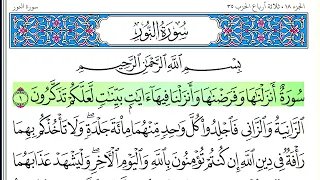 الجزء ١٨، ثلاثة أرباع الحزب ٣٥
سورة النور
سُورَةُ النُّورِ
بِسْمِ اللَّهِ الرَّحْمَٰنِ الرَّحِيمِ
سُورَةٌ أَنزَلْنَٰهَا وَفَرَضْنَٰهَا وَأَنزَلْنَا فِيهَآ ءَايَٰتٍۭ بَيِّنَٰتٍ لَّعَلَّكُمْ تَذَكَّرُونَ ١
ٱلزَّانِيَةُ وَٱلزَّانِى فَٱجْلِدُوا۟ كُلَّ وَٰحِدٍ مِّنْهُمَا مِا۟ئَةَ جَلْدَةٍ ۖ وَلَا تَأْخُذْكُم بِهِمَا
رَأْفَةٌ فِى دِينِ ٱللَّهِ إِن كُنتُمْ تُؤْمِنُونَ بِٱللَّهِ وَٱلْيَوْمِ ٱلْءَاخِرِ ۖ وَلْيَشْهَدْ عَذَابَهُمَا